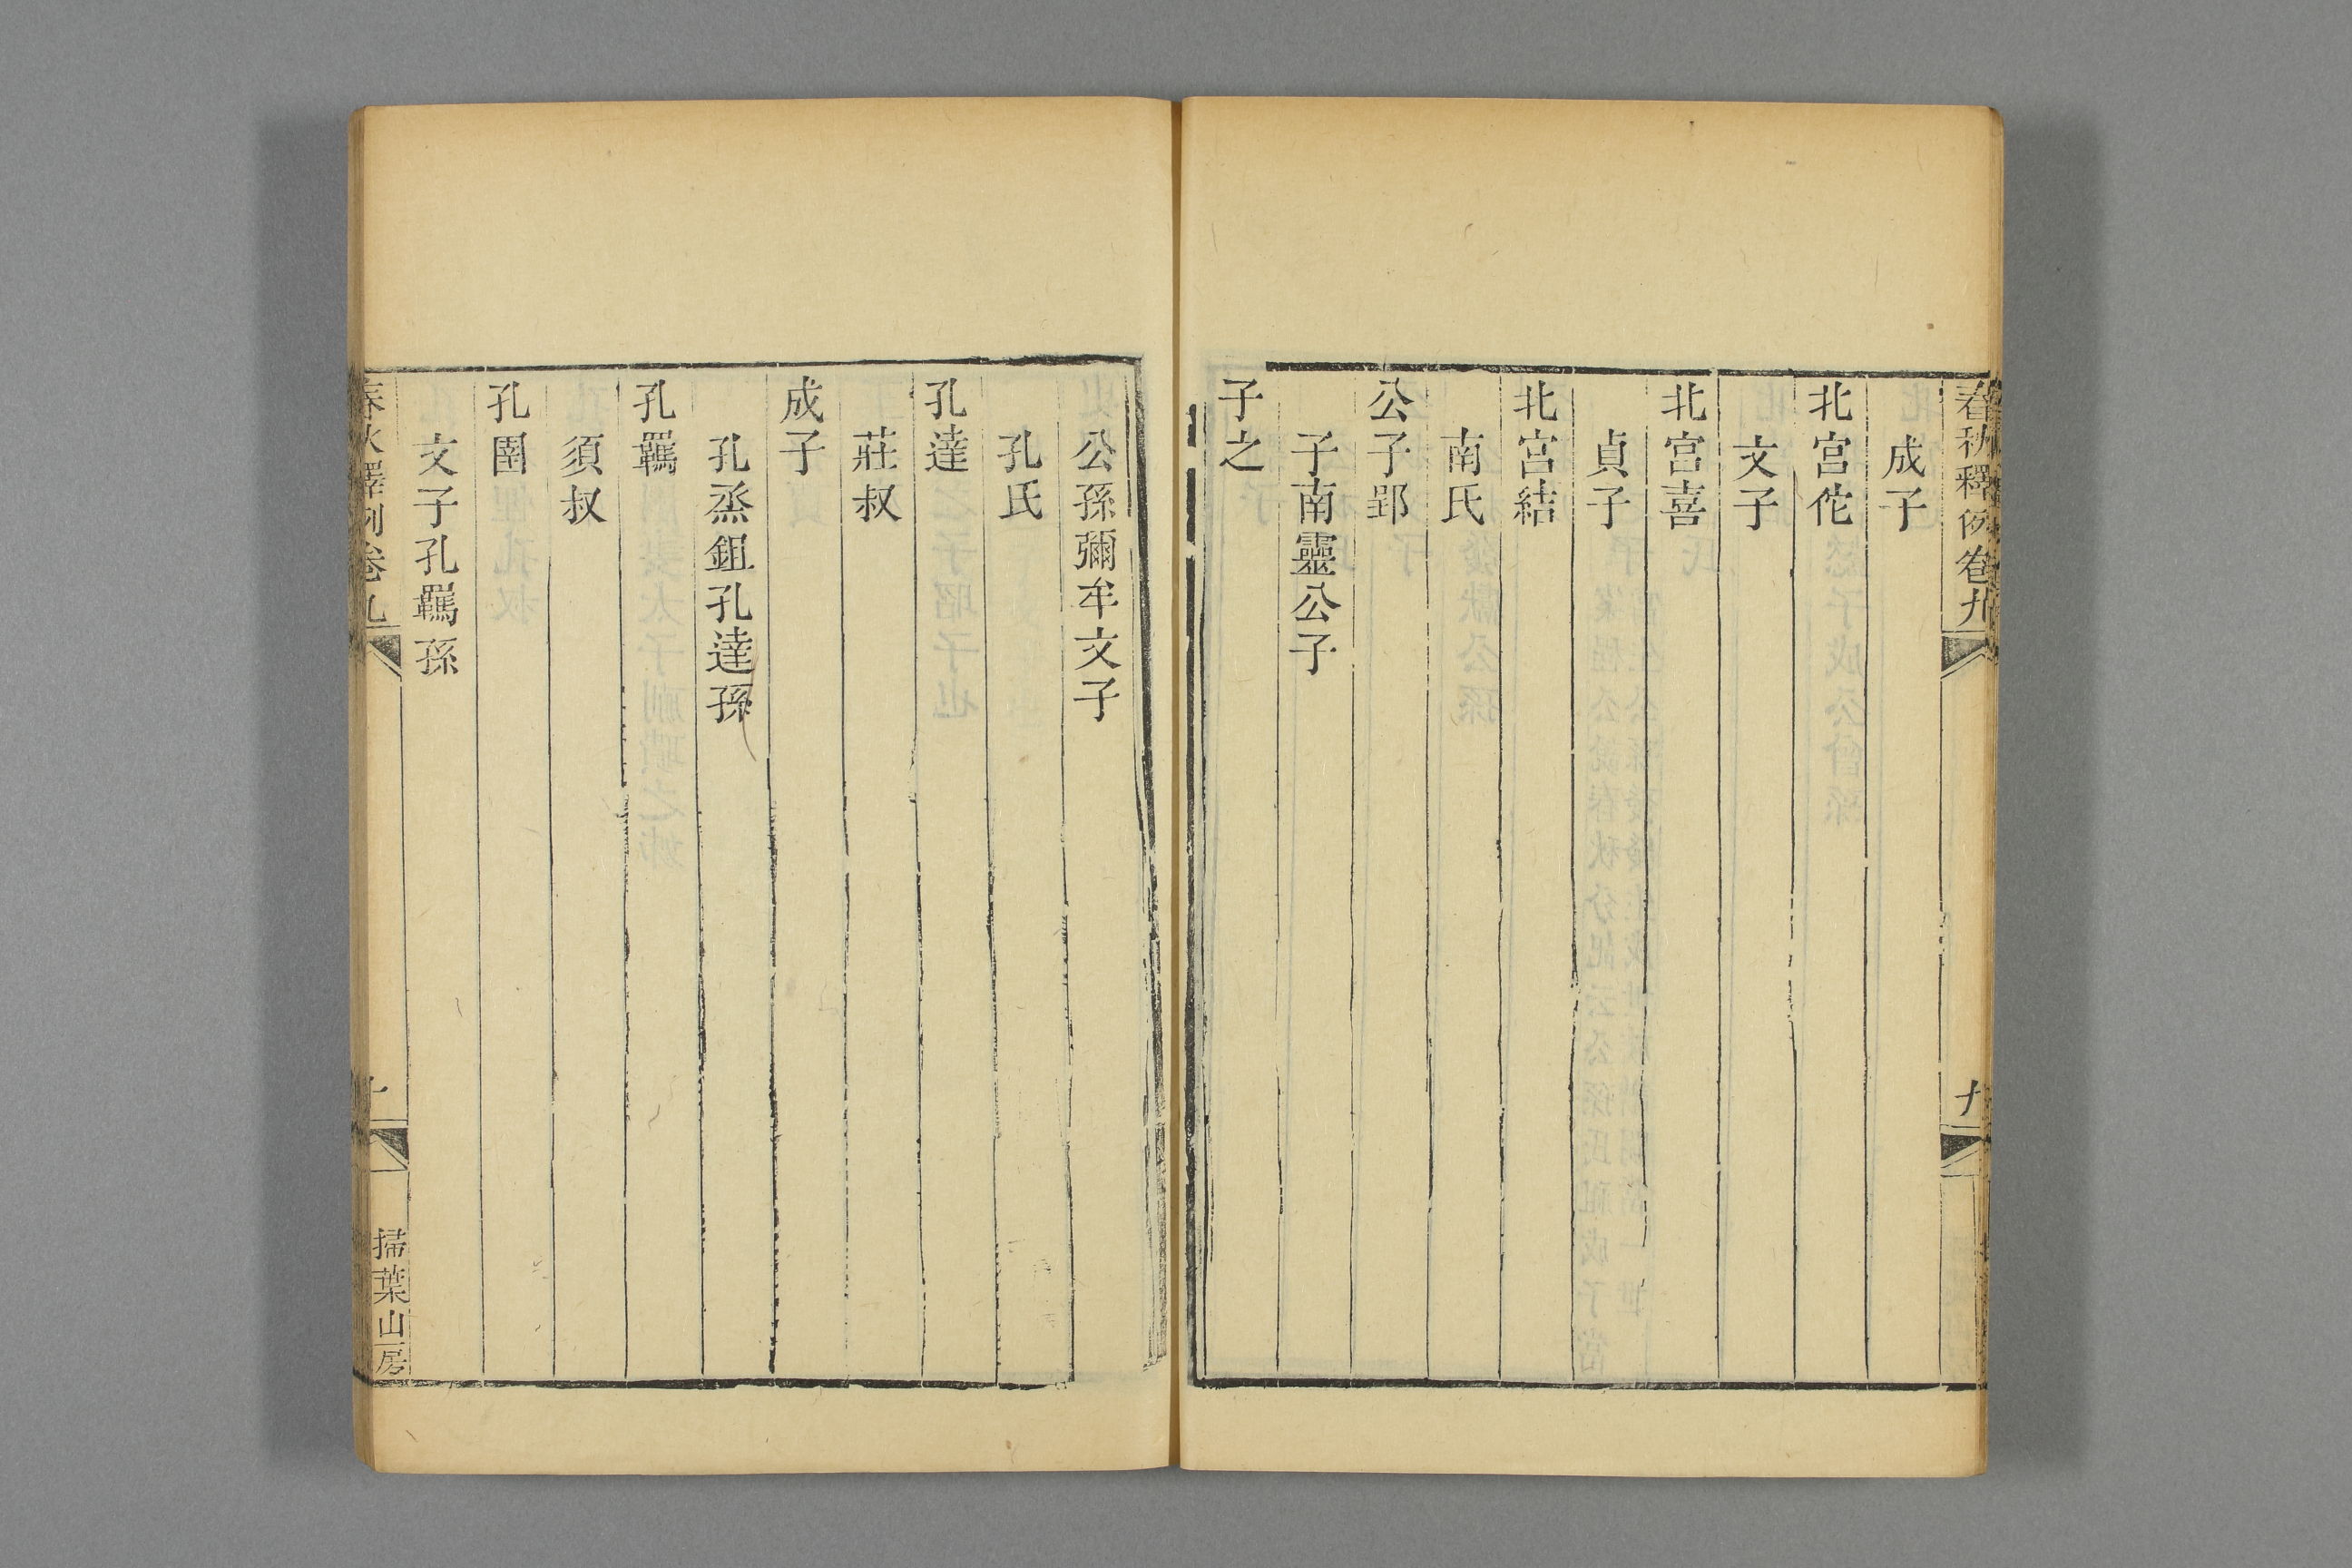 春秋釋例卷九
九
成子
北宮佗
文子
北宮喜
貞子
北宮結
南氏
公子郢
子南靈公子
子之
公孫彌牟文子
孔氏
孔達
莊叔
成子
孔烝鉏孔達孫
孔羈
須叔
孔圉
文子孔羈孫
春秋釋例卷九
十
掃葉山房